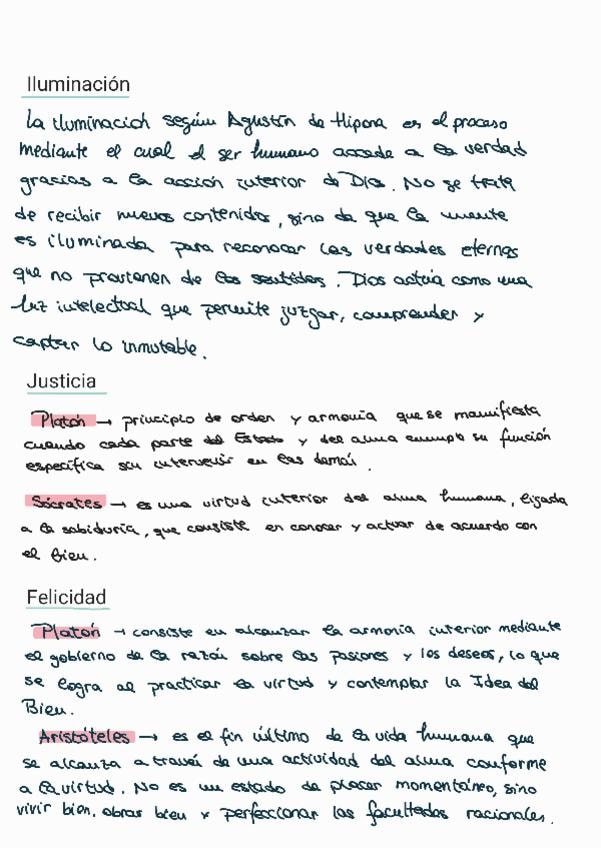 Iluminación
La iluminación según Agustín de Hipona es el proceso
mediante el cual el ser humano accede a la verdad
gracias a la acción interior de Dios. No se trata
de recibir nuevos contenidos, sino de que la mente
es iluminada para reconocer las verdades eternas
que no provienen de los sentidos. Dios actúa como una
luz intelectual que permite juzgar, comprender y
captar lo inmutable.
Justicia
Platón → principio de orden y armonía que se manifiesta
cuando cada parte del Estado y del alma cumple su función
específica sin intervenir en las demás.
Sócrates → es una virtud interior del alma humana, ligada
a la sabiduría, que consiste en conocer y actuar de acuerdo con
el bien.
Felicidad
Platón → consiste en alcanzar la armonía interior mediante
el gobierno de la razón sobre las pasiones y los deseos, lo que
se logra al practicar la virtud y contemplar la Idea del
Bien.
Aristóteles → es el fin último de la vida humana que
se alcanza a través de una actividad del alma conforme
a la virtud. No es un estado de placer momentáneo, sino
vivir bien, obrar bien y perfeccionar las facultades racionales.